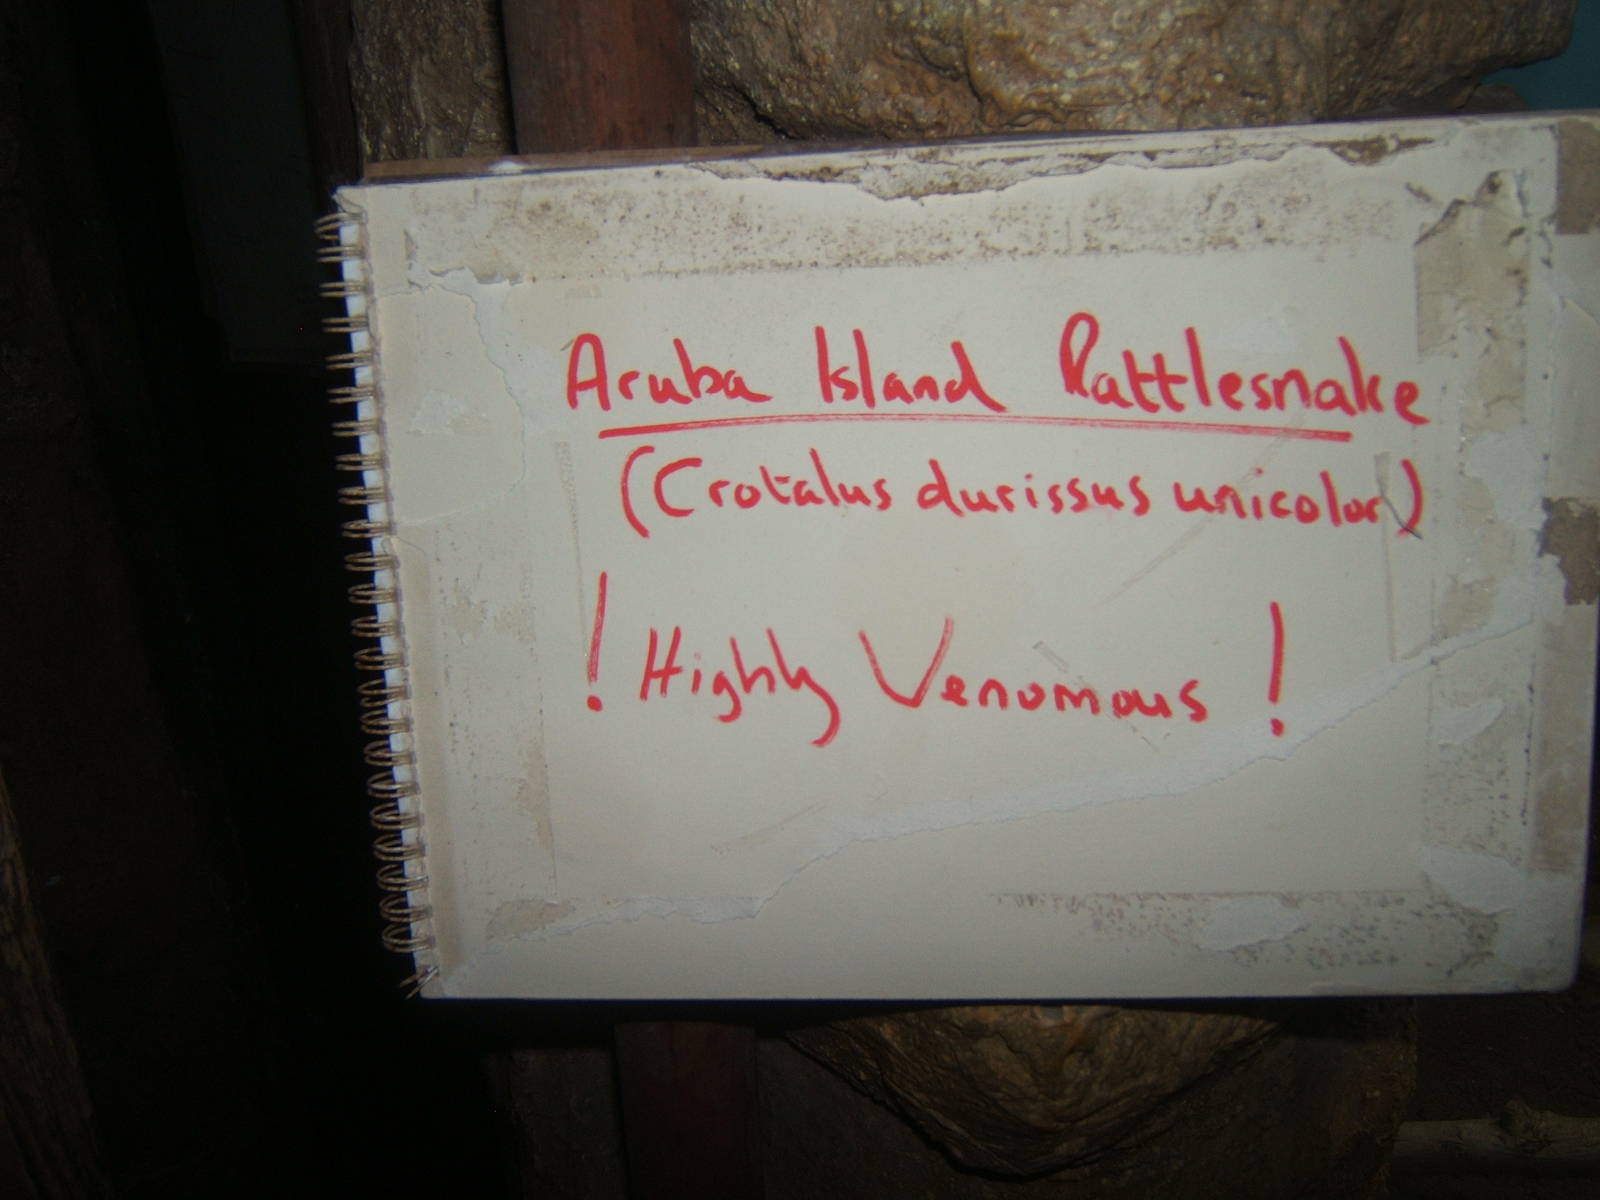 Aruba Island Rattlesnake
(Crotalus durissus unicolor)
! Highly Venomous !